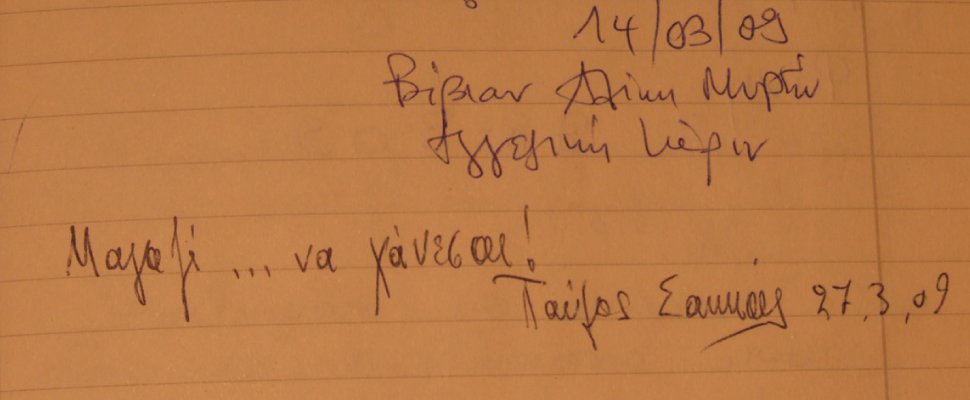 14/03/09
Βίβιαν Αλίκη Μυρτώ
Αγγελική Μάριν
Μαγαζί ... να χάνεσαι!
Παύλος Σακκάς 27.3.09